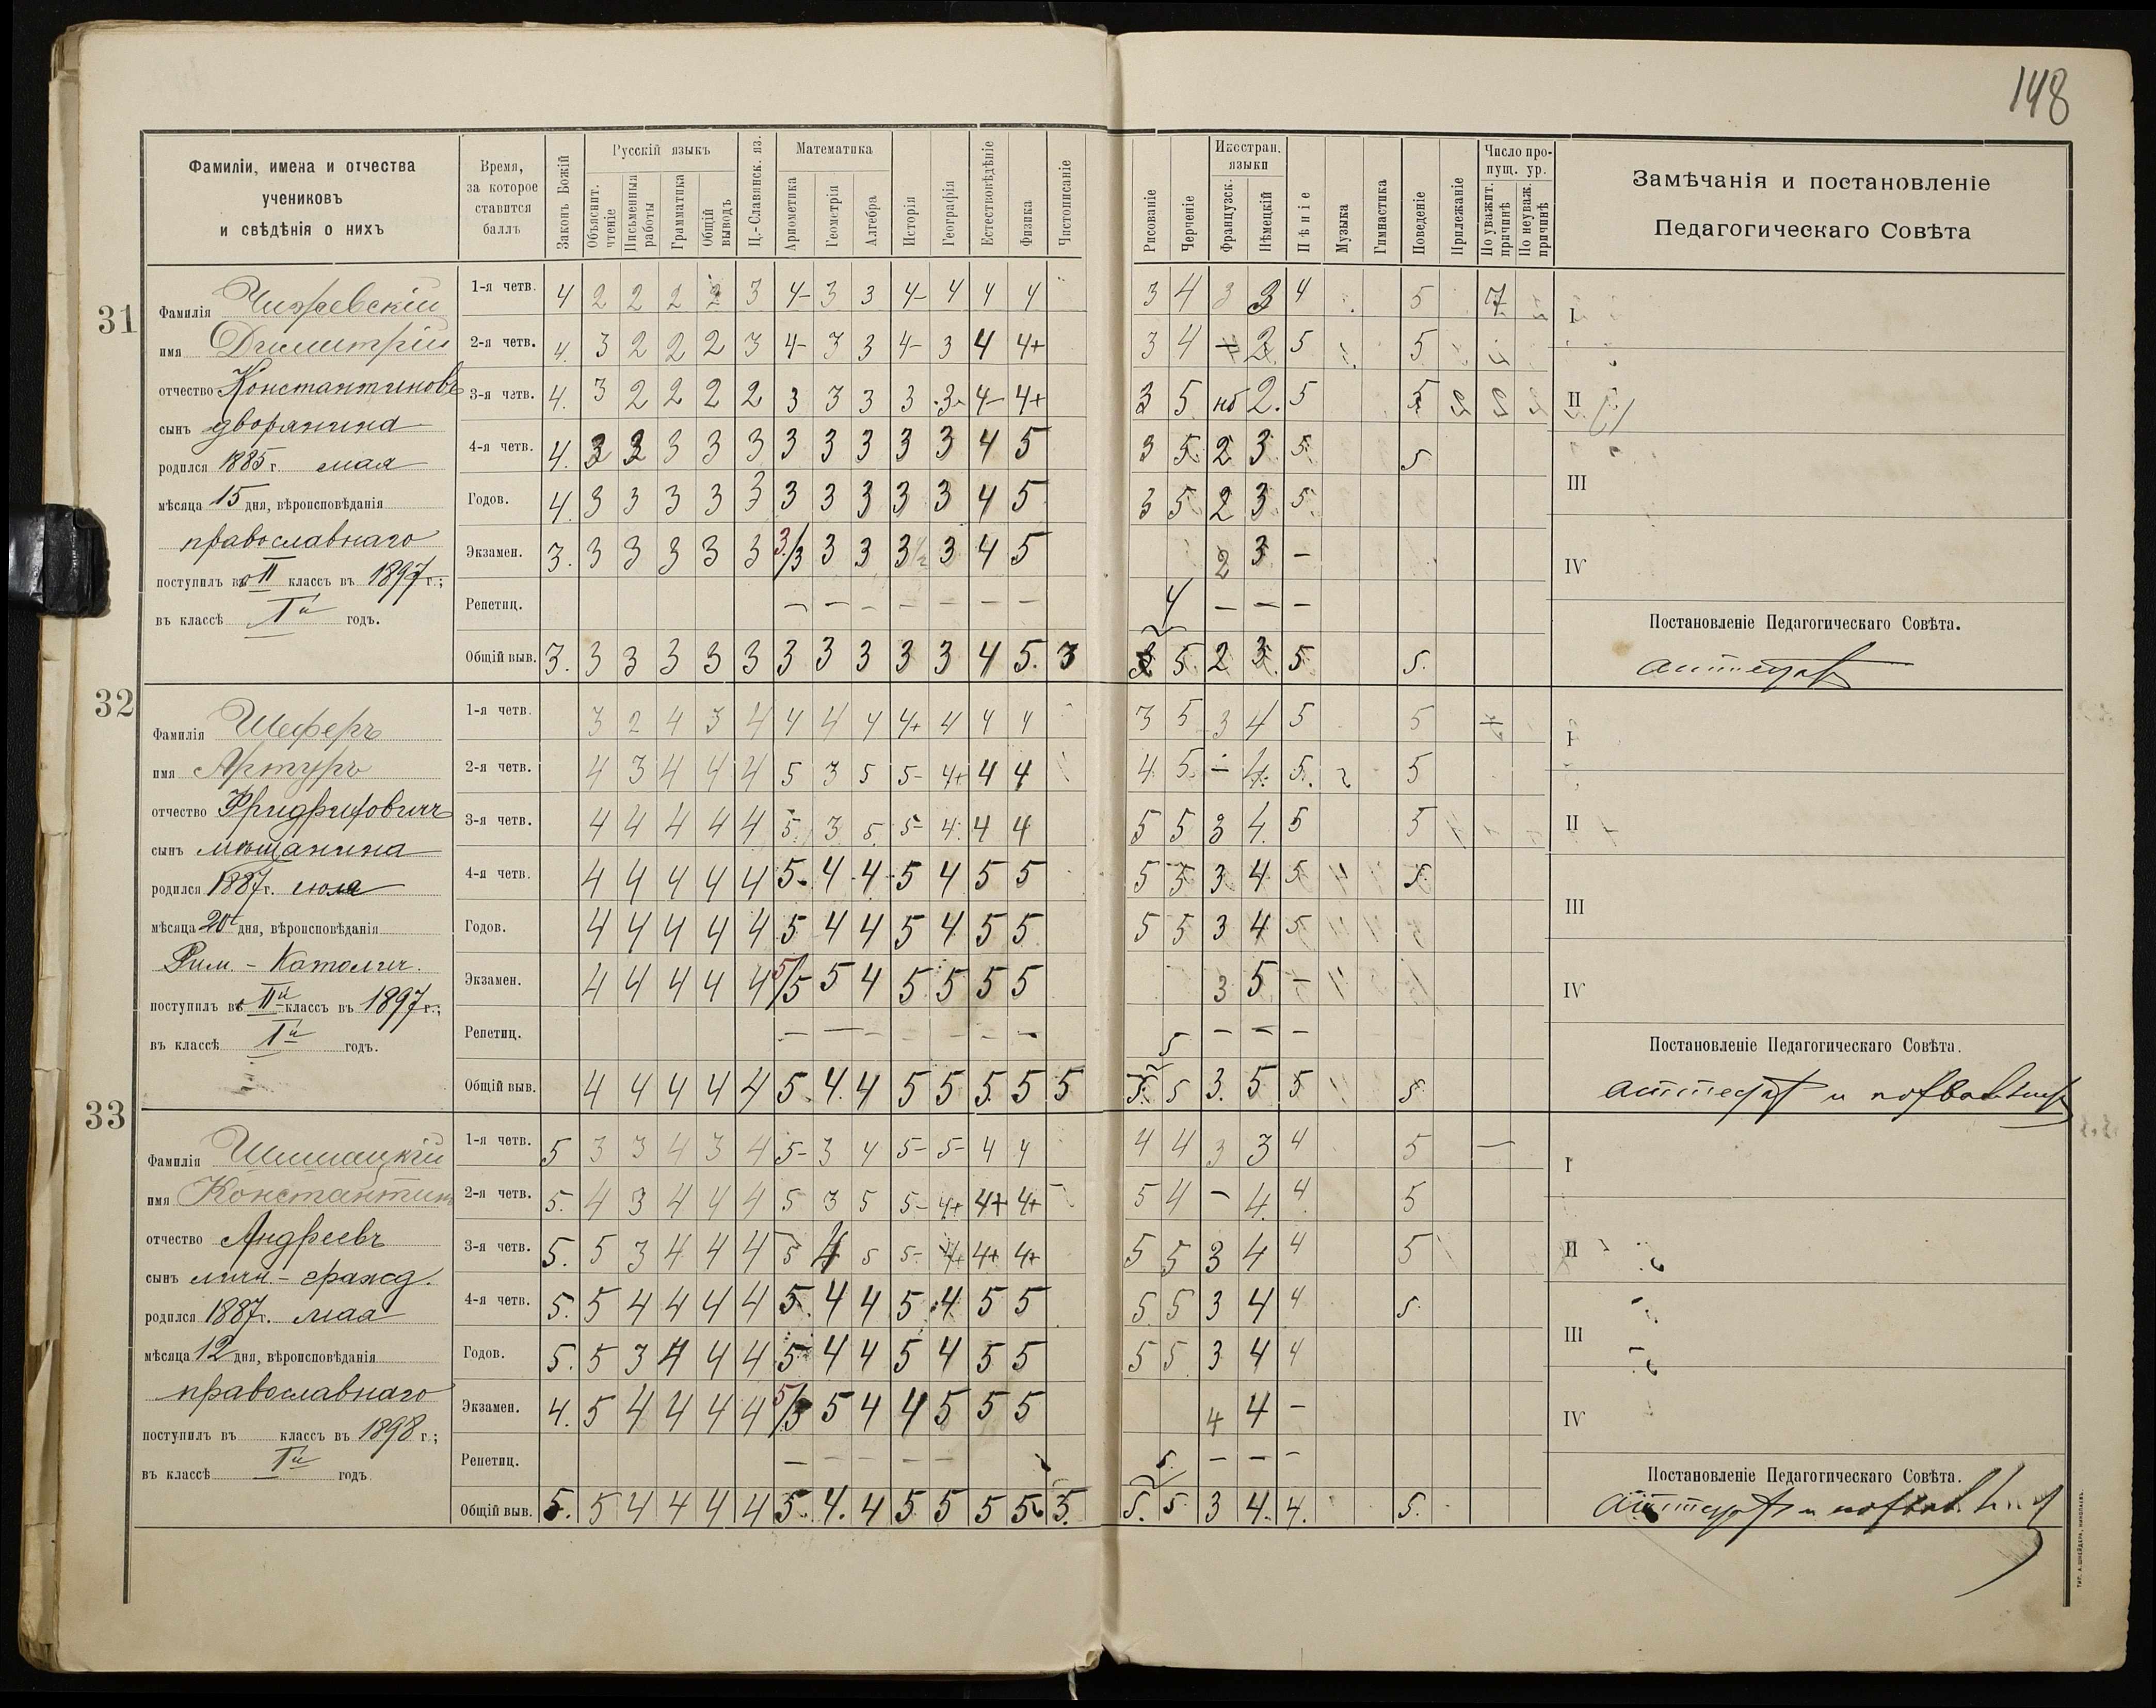 148
Фамиліи, имена и отчества
учениковъ
и свѣдѣнія о нихъ
Время,
за которое
ставится
баллъ
Законъ Божій
Русскій языкъ
Объяснит. чтеніе
Письменныя работы
Грамматика
Общій выводъ
Ц.-Славянск. яз.
Математика
Ариѳметика
Геометрія
Алгебра
Исторія
Географія
Естествовѣдѣніе
Физика
Чистописаніе
Рисованіе
Черченіе
Иностран. языки
Французск.
Нѣмецкій
Пѣніе
Музыка
Гимнастика
Поведеніе
Прилежаніе
Число пропущ. ур.
По уважит. причинѣ
По неуваж. причинѣ
Замѣчанія и постановленіе
Педагогическаго Совѣта
31
Фамилія Чижевскій
имя Димитрій
отчество Константиновъ
сынъ дворянина
родился 1885 г. мая
мѣсяца 15 дня, вѣроисповѣданія
православнаго
поступилъ во II классъ въ 1897 г.;
въ классѣ Iй годъ.
1-я четв. 4 2 2 2 2 3 4- 3 3 4- 4 4 4 3 4 3 3 4 5 7
2-я четв. 4. 3 2 2 2 3 4- 3 3 4- 3 4 4+ 3 4 – 2 5 5
3-я четв. 4. 3 2 2 2 2 3 3 3 3 3 4- 4+ 3 5 нб 2. 5 5
4-я четв. 4. 3 3 3 3 3 3 3 3 3 3 4 5 3 5 2 3 5 5
Годов. 4. 3 3 3 3 3 3 3 3 3 3 4 5 3 5 2 3 5
Экзамен. 3. 3 3 3 3 3 3/3 3 3 3 3 4 5 2 3 –
Репетиц. – – – – – – – 4 – – –
Общій выв. 3. 3 3 3 3 3 3 3 3 3 3 4 5. 3 5. 2 3. 5 5.
I
II
III
IV
Постановленіе Педагогическаго Совѣта.
аттестат
32
Фамилія Шеферъ
имя Артуръ
отчество Фридриховичъ
сынъ мѣщанина
родился 1887 г. іюля
мѣсяца 20 дня, вѣроисповѣданія
Рим. - Католич.
поступилъ во IIй классъ въ 1897 г.;
въ классѣ Iй годъ.
1-я четв. 3 2 4 3 4 4 4 4 4+ 4 4 4 3 5 3 4 5 5
2-я четв. 4 3 4 4 4 5 3 5 5- 4+ 4 4 4 5 – 4. 5. 5
3-я четв. 4 4 4 4 4 5 3 5 5- 4 4 4 5 5 3 4. 5 5
4-я четв. 4 4 4 4 4 5 4 4 5 4 5 5 5 5 3 4 5 5
Годов. 4 4 4 4 4 5 4 4 5 4 5 5 5 5 3 4 5
Экзамен. 4 4 4 4 4 5/5 5 4 5 5 5 5 3 5 –
Репетиц. – – – – – – – 5 – – –
Общій выв. 4 4 4 4 4 5. 4. 4 5 5 5. 5 5 5. 5 3. 5 5 5
I
II
III
IV
Постановленіе Педагогическаго Совѣта.
аттестат и похвал. лист
33
Фамилія Шимацкій
имя Константинъ
отчество Андреевъ
сынъ личн. - гражд.
родился 1887 г. мая
мѣсяца 12 дня, вѣроисповѣданія
православнаго
поступилъ въ классъ въ 1898 г.;
въ классѣ Iй годъ
1-я четв. 5 3 3 4 3 4 5- 3 4 5- 5- 4 4 4 4 3 3 4 5 –
2-я четв. 5. 4 3 4 4 4 5 3 5 5- 4+ 4+ 4+ 5 4 – 4. 4 5
3-я четв. 5. 5 3 4 4 4 5 4 5 5- 4+ 4+ 4+ 5 5 3 4 4 5
4-я четв. 5. 5 4 4 4 4 5. 4 4 5 4 5 5 5 5 3 4 4 5.
Годов. 5. 5 3 4 4 4 5 4 4 5 4 5 5 5 5 3 4 4
Экзамен. 4. 5 4 4 4 4 5/5 5 4 4 5 5 5 4 4 –
Репетиц. – – – – – 5. – – –
Общій выв. 5. 5 4 4 4 4 5. 4. 4 5 5 5 5 5. 5. 5 3 4. 4. 5.
I
II
III
IV
Постановленіе Педагогическаго Совѣта.
аттестат и похвал. лист
ТИП. А. ШНЕЙДЕРА, НИКОЛАЕВЪ.